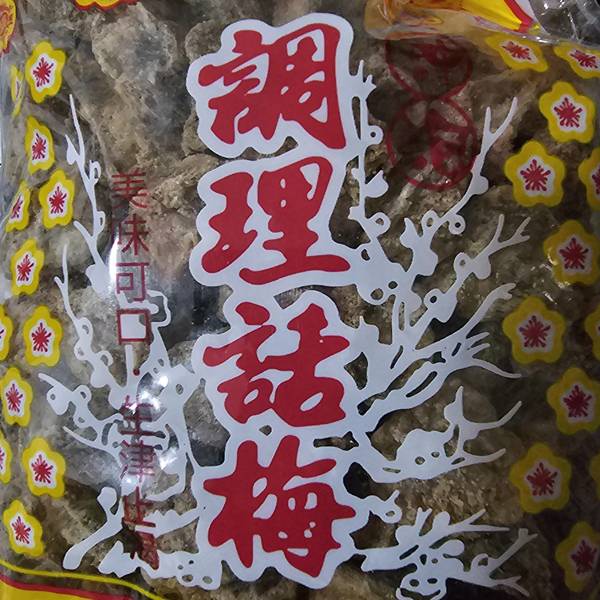 調理話梅
美味可口!生津止渴